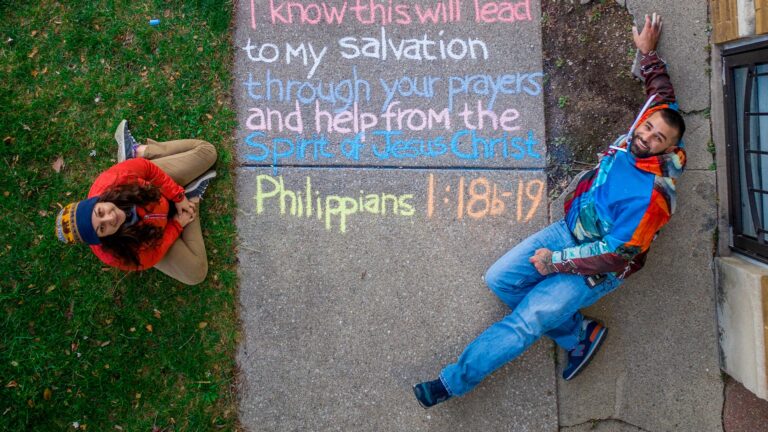 I know this will lead
to my salvation
through your prayers
and help from the
Spirit of Jesus Christ
Philippians 1:18b-19